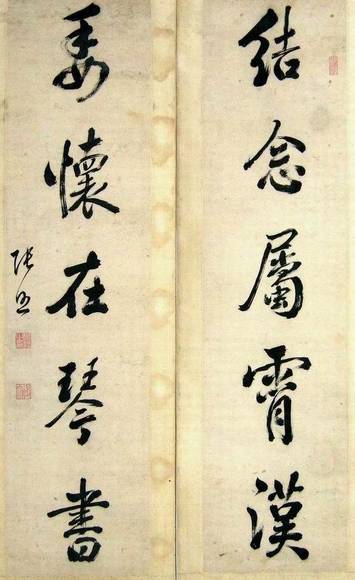 结念屬霄漢
委懷在琴書
張照